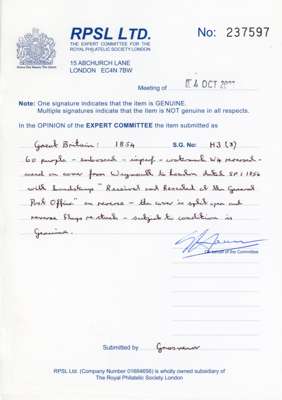 RPSL LTD.
THE EXPERT COMMITTEE FOR THE
ROYAL PHILATELIC SOCIETY LONDON
No: 237597
15 ABCHURCH LANE
LONDON EC4N 7BW
Meeting of 04 OCT
Note: One signature indicates that the item is GENUINE.
Multiple signatures indicates that the item is NOT genuine in all respects.
In the OPINION of the EXPERT COMMITTEE the item submitted as
Great Britain: 1854 S.G. No: H3(3)
6d purple - embossed - imperf. - watermark W4 reversed -
used on cover from Weymouth to London dated SP 1 1854
with handstamps "Received and Resealed at the General
Post Office" on reverse - the cover is split open and
reverse flaps re-stuck - subject to condition is
genuine.
on behalf of the Committee
Submitted by Grosvenor
RPSL Ltd. (Company Number 01664656) is wholly owned subsidiary of
The Royal Philatelic Society London